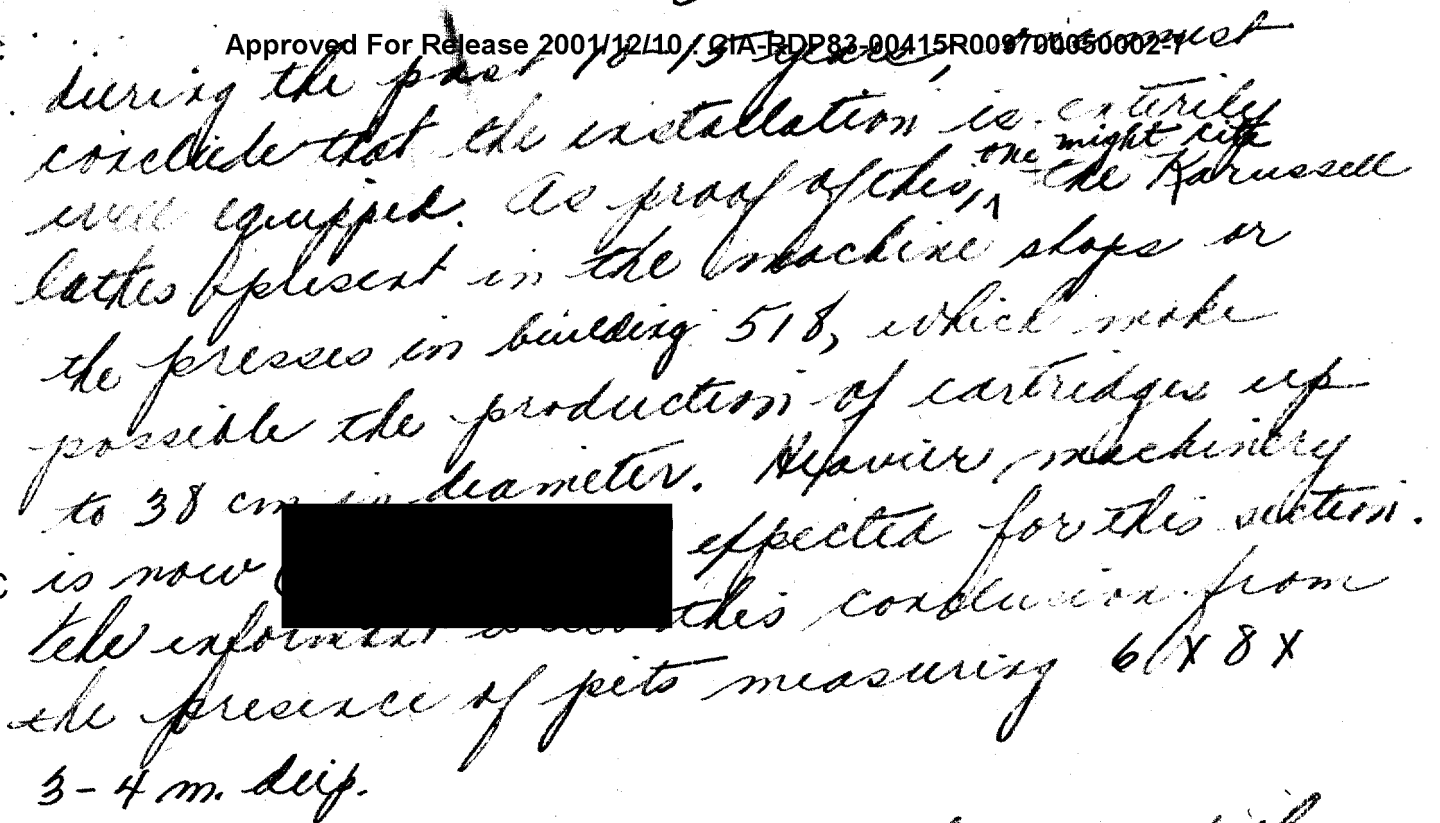 Approved For Release 2001/12/10 : CIA-RDP83-00415R009700050002-1
during the past 10-15 years, must
conclude that the installation is entirely
well equipped. As proof of this, one might cite the Karussell
lathes present in the machine shops or
the presses in building 518, which make
possible the production of cartridges up
to 38 cm in diameter. Heavier machinery
is now expected for this section.
the informant this conclusion from
the presence of pits measuring 6 X 8 X
3-4 m. deep.